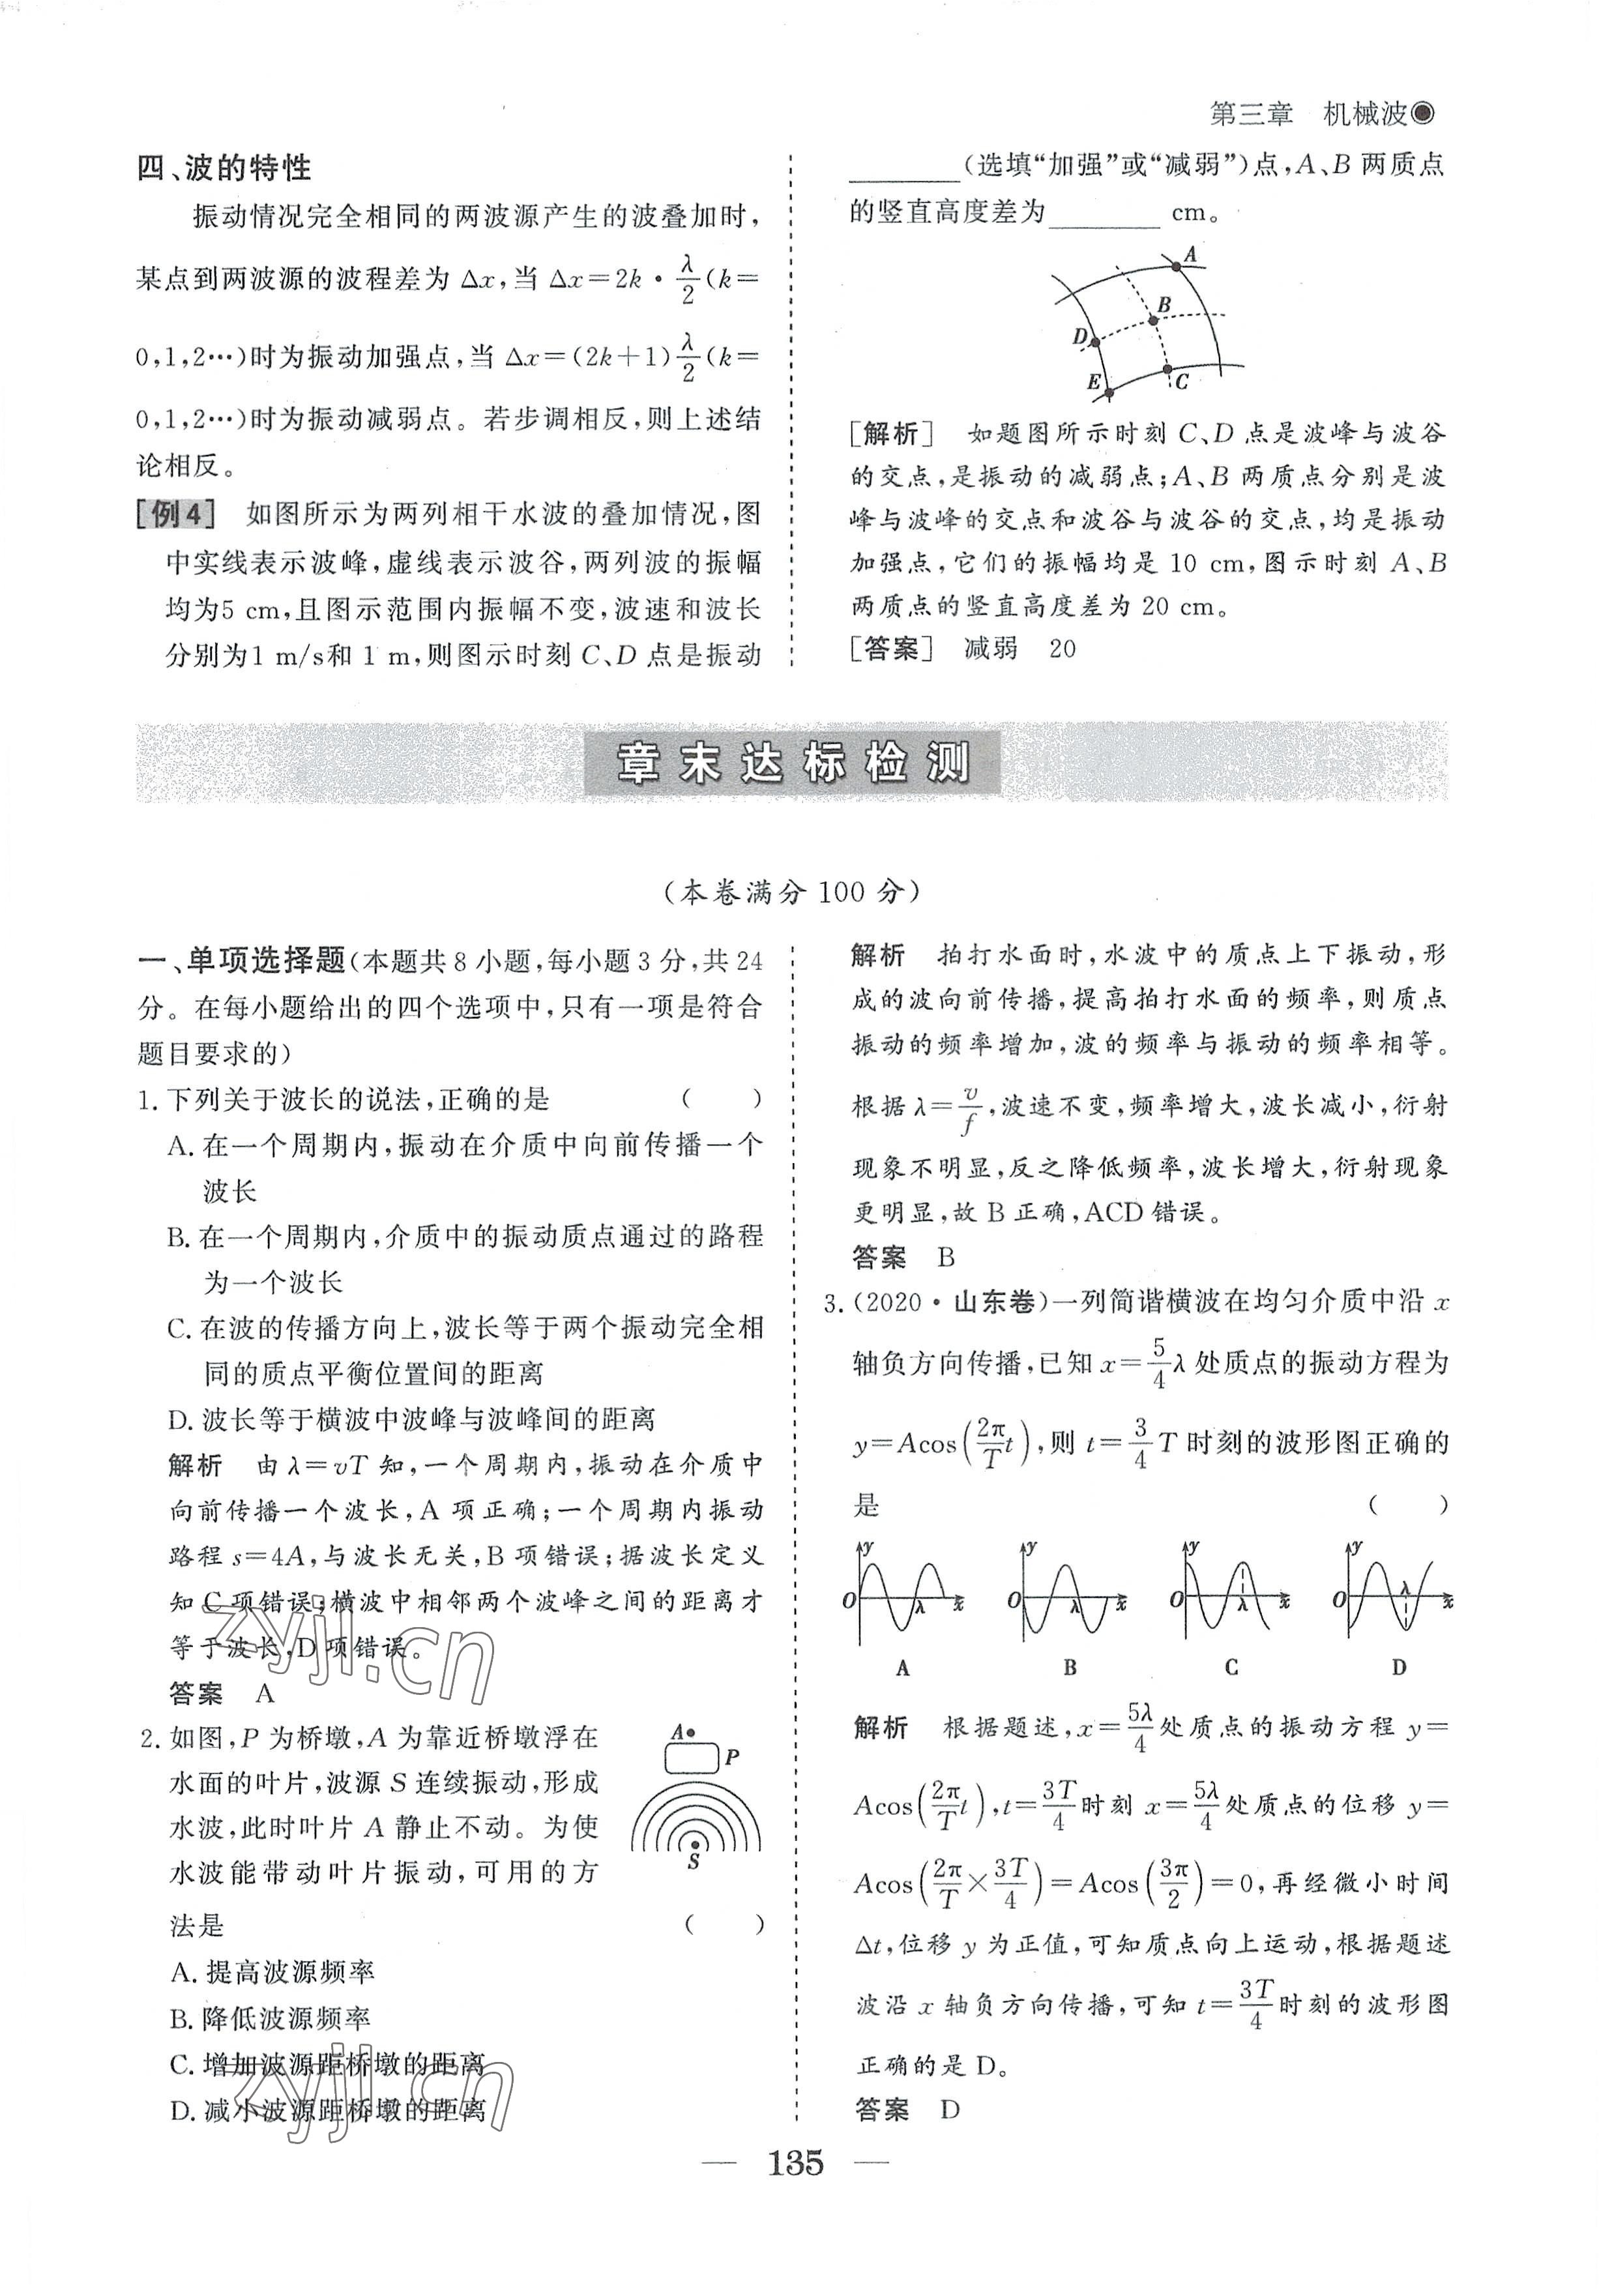 第三章　机械波
四、波的特性
振动情况完全相同的两波源产生的波叠加时,
某点到两波源的波程差为 Δx,当 Δx=2k·λ/2(k=
0,1,2…)时为振动加强点,当 Δx=(2k+1)λ/2(k=
0,1,2…)时为振动减弱点。若步调相反,则上述结
论相反。
[例4]　如图所示为两列相干水波的叠加情况,图
中实线表示波峰,虚线表示波谷,两列波的振幅
均为5 cm,且图示范围内振幅不变,波速和波长
分别为1 m/s和 1 m,则图示时刻 C、D 点是振动
________(选填“加强”或“减弱”)点,A、B 两质点
的竖直高度差为________ cm。
A
B
D
E
C
[解析]　如题图所示时刻 C、D 点是波峰与波谷
的交点,是振动的减弱点;A、B 两质点分别是波
峰与波峰的交点和波谷与波谷的交点,均是振动
加强点,它们的振幅均是 10 cm,图示时刻 A、B
两质点的竖直高度差为 20 cm。
[答案]　减弱　20
章末达标检测
(本卷满分 100 分)
一、单项选择题(本题共 8 小题,每小题 3 分,共 24
分。在每小题给出的四个选项中,只有一项是符合
题目要求的)
1. 下列关于波长的说法,正确的是　(　　)
A. 在一个周期内,振动在介质中向前传播一个
波长
B. 在一个周期内,介质中的振动质点通过的路程
为一个波长
C. 在波的传播方向上,波长等于两个振动完全相
同的质点平衡位置间的距离
D. 波长等于横波中波峰与波峰间的距离
解析　由 λ=vT 知,一个周期内,振动在介质中
向前传播一个波长,A 项正确;一个周期内振动
路程 s=4A,与波长无关,B 项错误;据波长定义
知 C 项错误;横波中相邻两个波峰之间的距离才
等于波长,D 项错误。
答案　A
2. 如图,P 为桥墩,A 为靠近桥墩浮在
水面的叶片,波源 S 连续振动,形成
水波,此时叶片 A 静止不动。为使
水波能带动叶片振动,可用的方
法是　(　　)
A
P
S
A. 提高波源频率
B. 降低波源频率
C. 增加波源距桥墩的距离
D. 减小波源距桥墩的距离
解析　拍打水面时,水波中的质点上下振动,形
成的波向前传播,提高拍打水面的频率,则质点
振动的频率增加,波的频率与振动的频率相等。
根据 λ=v/f,波速不变,频率增大,波长减小,衍射
现象不明显,反之降低频率,波长增大,衍射现象
更明显,故 B 正确,ACD 错误。
答案　B
3. (2020·山东卷)一列简谐横波在均匀介质中沿 x
轴负方向传播,已知 x=5/4λ 处质点的振动方程为
y=Acos(2π/T t),则 t=3/4 T 时刻的波形图正确的
是　(　　)
y O λ x
y O λ x
y O λ x
y O λ x
A　B　C　D
解析　根据题述,x=5λ/4 处质点的振动方程 y=
Acos(2π/T t),t=3T/4 时刻 x=5λ/4 处质点的位移 y=
Acos(2π/T×3T/4)=Acos(3π/2)=0,再经微小时间
Δt,位移 y 为正值,可知质点向上运动,根据题述
波沿 x 轴负方向传播,可知 t=3T/4 时刻的波形图
正确的是 D。
答案　D
zyjl.cn
zyjl.cn
— 135 —